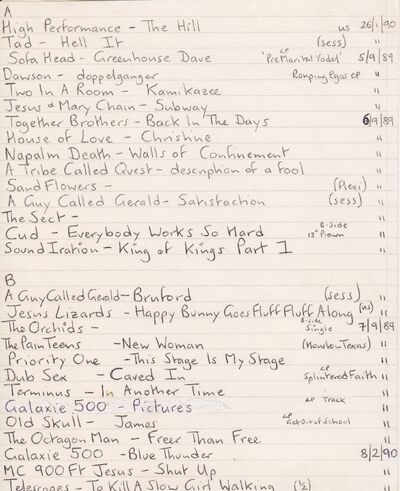 A
High Performance - The Hill us 26/1/90
Tad - Hell It (sess) "
Sofa Head - Greenhouse Dave LP 'PreMarital Yodel' 5/9/89
Dawson - doppelganger Romping Egos EP "
Two In A Room - Kamikazee "
Jesus & Mary Chain - Subway "
Together Brothers - Back In The Days 6/9/89
House of Love - Christine "
Napalm Death - Walls of Confinement "
A Tribe Called Quest - description of a fool "
Sand Flowers - (flexi) "
A Guy Called Gerald - Satisfaction (sess) "
The Sect - "
Cud - Everybody Works So Hard B-side 12" Prawn "
Sound Iration - King of Kings Part 1 "
B
A Guy Called Gerald - Bruford (sess) "
Jesus Lizards - Happy Bunny Goes Fluff Fluff Along (us) "
The Orchids - B-side Single 7/9/89
The Pain Teens - New Woman (Houston Texas) "
Priority One - This Stage Is My Stage "
Dub Sex - Caved In LP Splintered Faith "
Terminus - In Another Time "
Galaxie 500 - Pictures LP Track "
Old Skull - James LP Get Out of School "
The Octagon Man - Freer Than Free "
Galaxie 500 - Blue Thunder 8/2/90
MC 900 Ft Jesus - Shut Up "
Telescopes - To Kill A Slow Girl Walking (1/2) "